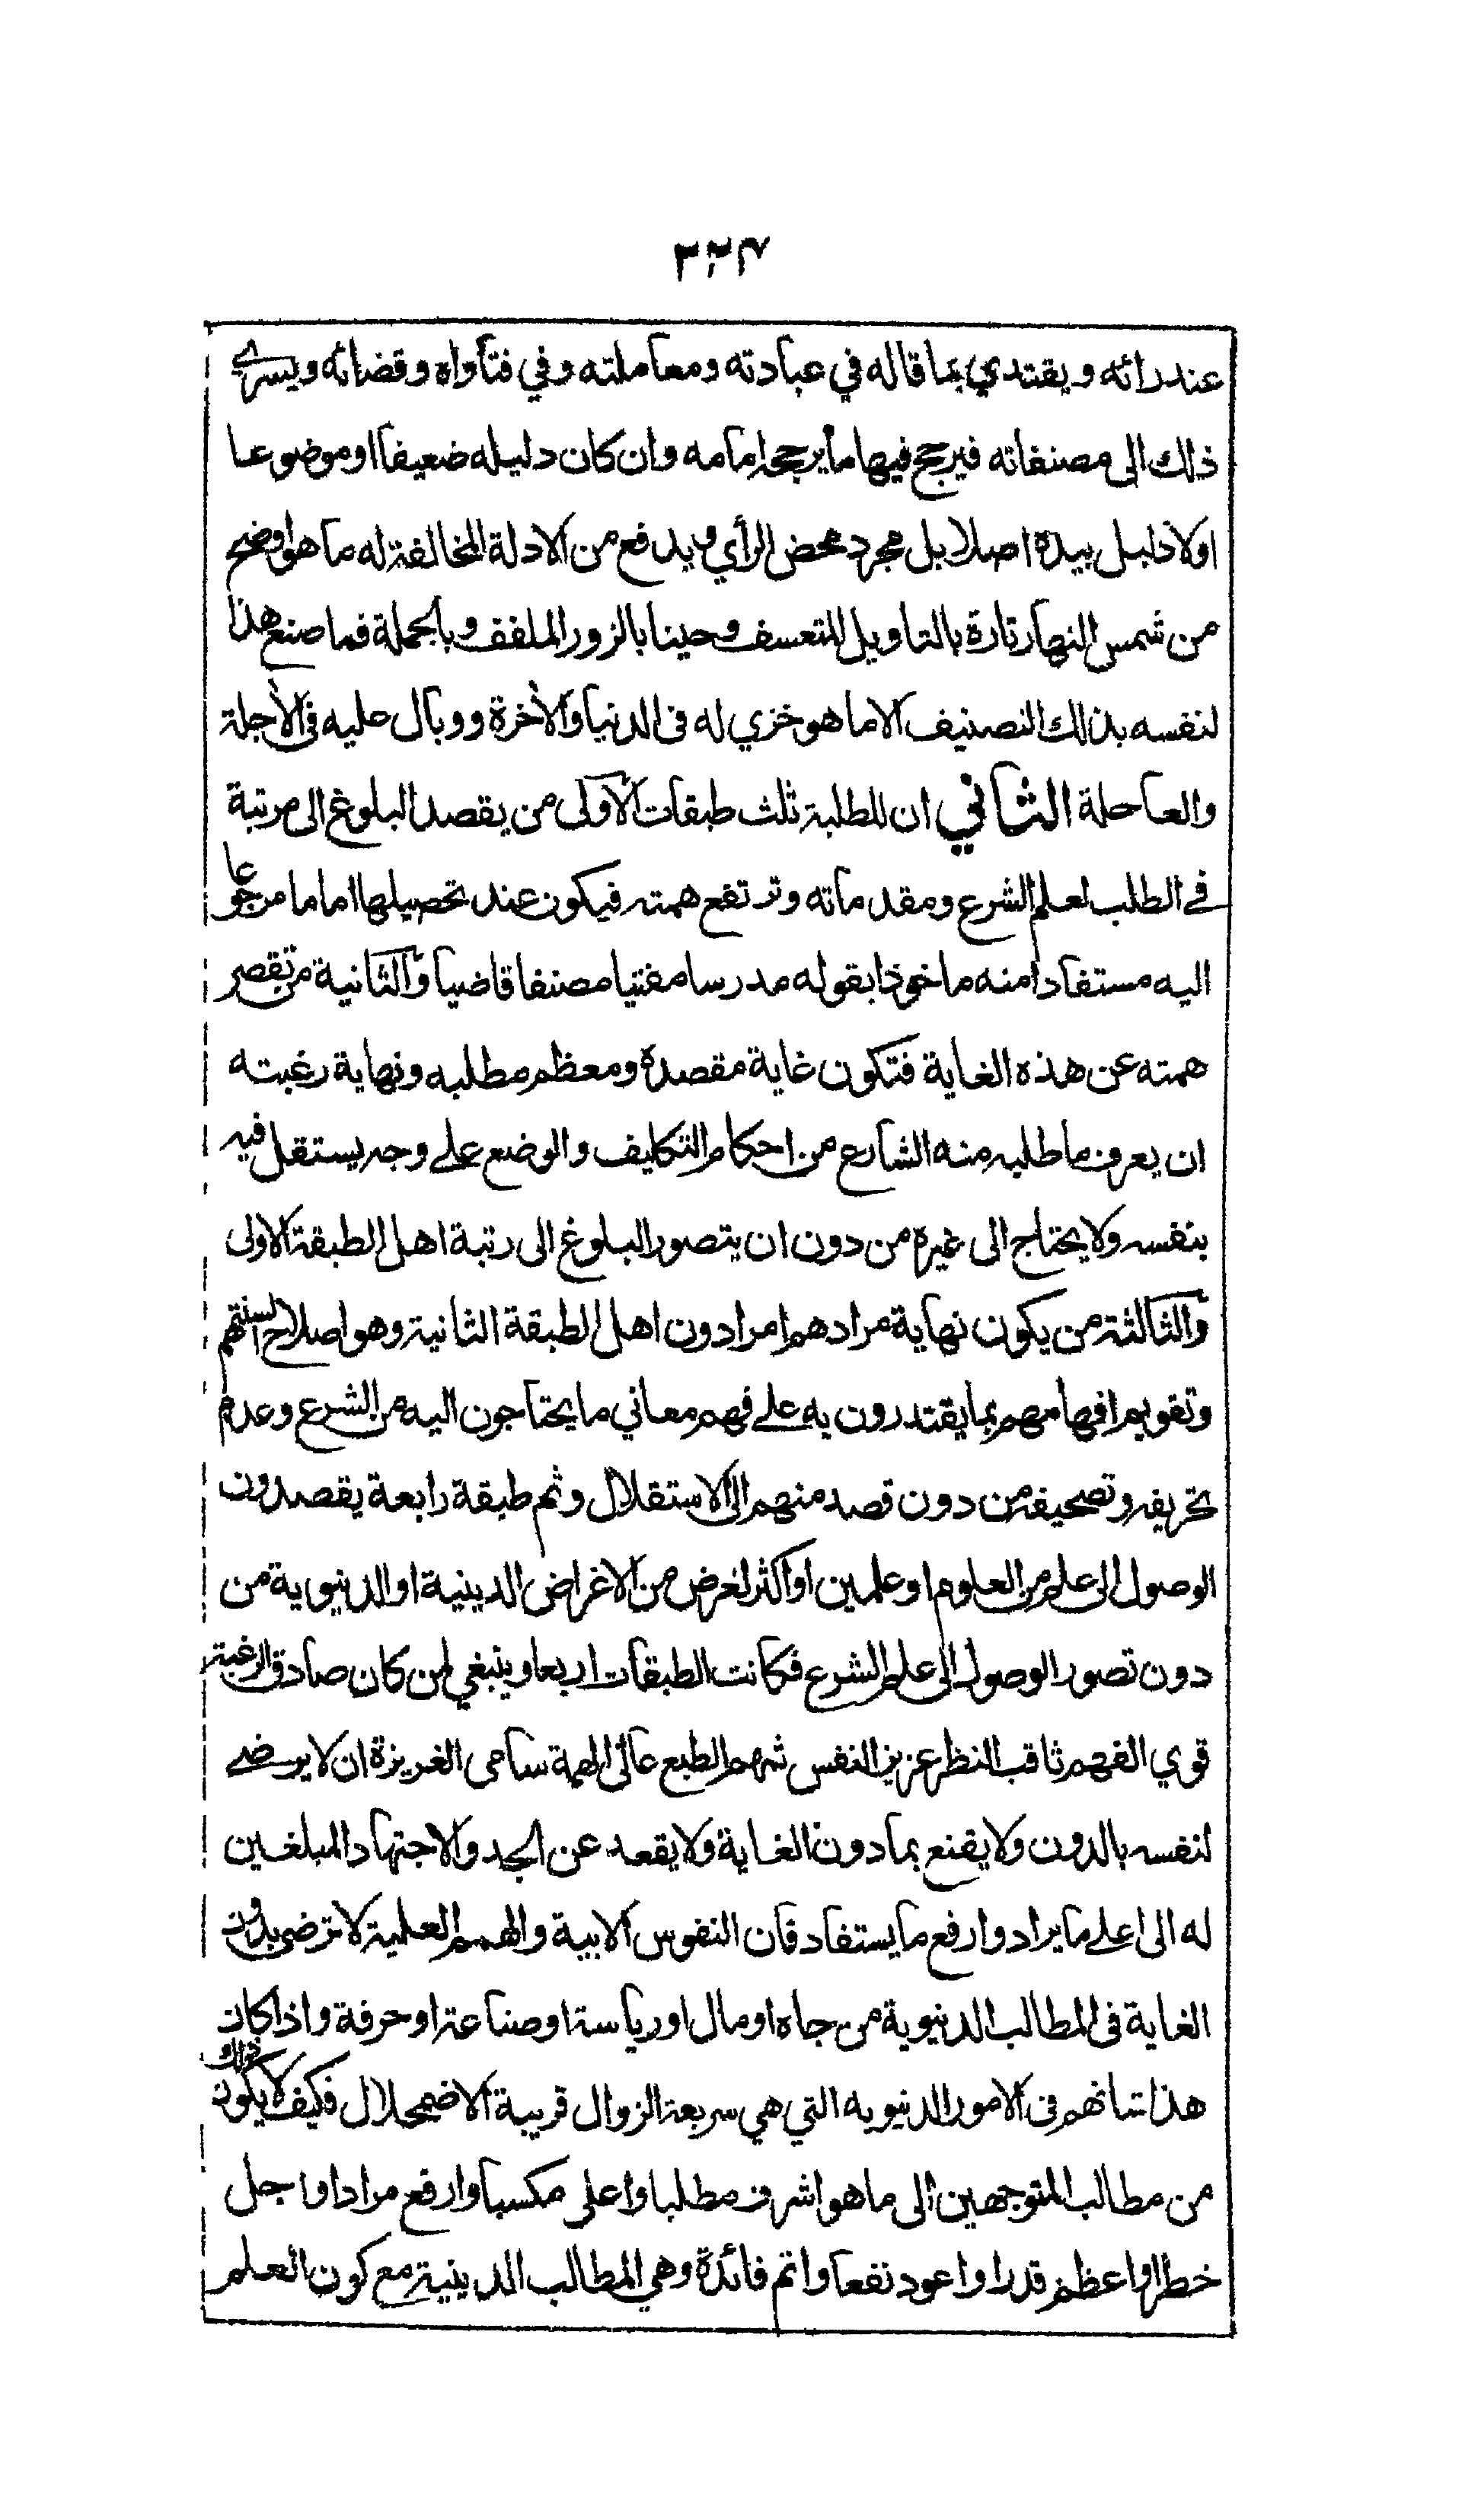 ٣٢٤
عند رائه ويقتدي بما قاله في عبادته ومعاملته وفي فتاواه وقضائه ويسرى
ذلك الى مصنفاته فيرجح فيها ما يرجحه امامه وان كان دليله ضعيفا او موضوعا
اولا دليل بيده اصلا بل مجرد محض الرأي ويدفع من الادلة المخالفة له ما هو اوضح
من شمس النهار تارة بالتاويل المتعسف وحينا بالزور الملفف وبالجملة فما صنع هذا
لنفسه بذلك التصنيف الا ما هو خزي له فى الدنيا والأخرة ووبال عليه فى الأجلة
والعاجلة الثاني ان للطلبة ثلث طبقات الأولى من يقصد البلوغ الى مرتبة
في الطلب لعلم الشرع ومقدماته وترتفع همته فيكون عند تحصيلها اماما مرجوعا
اليه مستفادا منه ماخوذا بقوله مدرسا مفتيا مصنفا قاضيا والثانية من تقصر
همته عن هذه الغاية فتكون غاية مقصده ومعظم مطلبه ونهاية رغبته
ان يعرف ما طلبه منه الشارع من احكام التكليف والوضع على وجه يستقل فيه
بنفسه ولا يحتاج الى غيره من دون ان يتصور البلوغ الى رتبة اهل الطبقة الاولى
والثالثة من يكون نهاية مرادهم امرا دون اهل الطبقة الثانية وهو اصلاح السنتهم
وتقويم افهامهم بما يقتدرون به على فهم معاني ما يحتاجون اليه من الشرع وعدم
تحريفه وتصحيفه من دون قصد منهم الى الاستقلال وثم طبقة رابعة يقصدون
الوصول الى علم من العلوم او علمين او اكثر لغرض من الاغراض الدينية او الدنيوية من
دون تصور الوصول الى علم الشرع فكانت الطبقات اربعا وينبغي لمن كان صادق الرغبة
قوي الفهم ثاقب النظر عزيز النفس شهم الطبع عالى الهمة سامى الغريزة ان لا يرضى
لنفسه بالدون ولا يقنع بما دون الغاية ولا يقعد عن الجد والاجتهاد المبلغين
له الى اعلى ما يراد وارفع ما يستفاد فان النفوس الابية والهمم العلمية لا ترضى بدون
الغاية فى المطالب الدنيوية من جاه او مال او رياسة او صناعة او حرفة واذا كان
هذا شانهم فى الامور الدنيويه التي هي سريعة الزوال قريبة الاضمحلال فكيف لا يكون ذلك
من مطالب المتوجهين الى ما هو اشرف مطلبا واعلى مكسبا وارفع مرادا واجل
خطرا واعظم قدرا واعود نفعا واتم فائدة وهي المطالب الدينية مع كون العلم